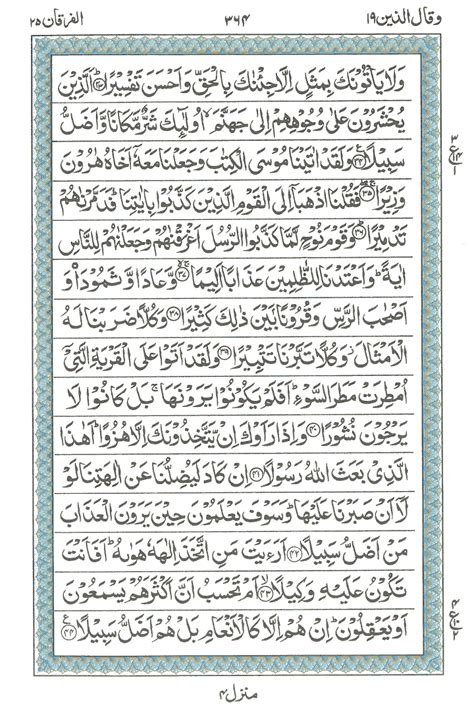 وقال الذين ١٩
٣٦٤
الفرقان ٢٥
وَلَا يَأْتُوْنَكَ بِمَثَلٍ اِلَّا جِئْنٰكَ بِالْحَقِّ وَاَحْسَنَ تَفْسِيْرًا ۝٣٣ اَلَّذِيْنَ
يُحْشَرُوْنَ عَلٰى وُجُوْهِهِمْ اِلٰى جَهَنَّمَ اُولٰٓئِكَ شَرٌّ مَّكَانًا وَّاَضَلُّ
سَبِيْلًا ۝٣٤ وَلَقَدْ اٰتَيْنَا مُوْسَى الْكِتٰبَ وَجَعَلْنَا مَعَهٗٓ اَخَاهُ هٰرُوْنَ
وَزِيْرًا ۝٣٥ فَقُلْنَا اذْهَبَآ اِلَى الْقَوْمِ الَّذِيْنَ كَذَّبُوْا بِاٰيٰتِنَا فَدَمَّرْنٰهُمْ
تَدْمِيْرًا ۝٣٦ وَقَوْمَ نُوْحٍ لَّمَّا كَذَّبُوا الرُّسُلَ اَغْرَقْنٰهُمْ وَجَعَلْنٰهُمْ لِلنَّاسِ
اٰيَةً ؕ وَاَعْتَدْنَا لِلظّٰلِمِيْنَ عَذَابًا اَلِيْمًا ۝٣٧ وَّعَادًا وَّثَمُوْدَا۟ وَ
اَصْحٰبَ الرَّسِّ وَقُرُوْنًۢا بَيْنَ ذٰلِكَ كَثِيْرًا ۝٣٨ وَكُلًّا ضَرَبْنَا لَهُ
الْاَمْثَالَ ؗ وَكُلًّا تَبَّرْنَا تَتْبِيْرًا ۝٣٩ وَلَقَدْ اَتَوْا عَلَى الْقَرْيَةِ الَّتِيْٓ
اُمْطِرَتْ مَطَرَ السَّوْءِ ؕ اَفَلَمْ يَكُوْنُوْا يَرَوْنَهَا ۚ بَلْ كَانُوْا لَا
يَرْجُوْنَ نُشُوْرًا ۝٤٠ وَاِذَا رَاَوْكَ اِنْ يَّتَّخِذُوْنَكَ اِلَّا هُزُوًا ؕ اَهٰذَا
الَّذِيْ بَعَثَ اللّٰهُ رَسُوْلًا ۝٤١ اِنْ كَادَ لَيُضِلُّنَا عَنْ اٰلِهَتِنَا لَوْ
لَآ اَنْ صَبَرْنَا عَلَيْهَا ؕ وَسَوْفَ يَعْلَمُوْنَ حِيْنَ يَرَوْنَ الْعَذَابَ
مَنْ اَضَلُّ سَبِيْلًا ۝٤٢ اَرَءَيْتَ مَنِ اتَّخَذَ اِلٰهَهٗ هَوٰىهُ ؕ اَفَاَنْتَ
تَكُوْنُ عَلَيْهِ وَكِيْلًا ۝٤٣ اَمْ تَحْسَبُ اَنَّ اَكْثَرَهُمْ يَسْمَعُوْنَ
اَوْ يَعْقِلُوْنَ ؕ اِنْ هُمْ اِلَّا كَالْاَنْعَامِ بَلْ هُمْ اَضَلُّ سَبِيْلًا ۝٤٤
منزل ٤